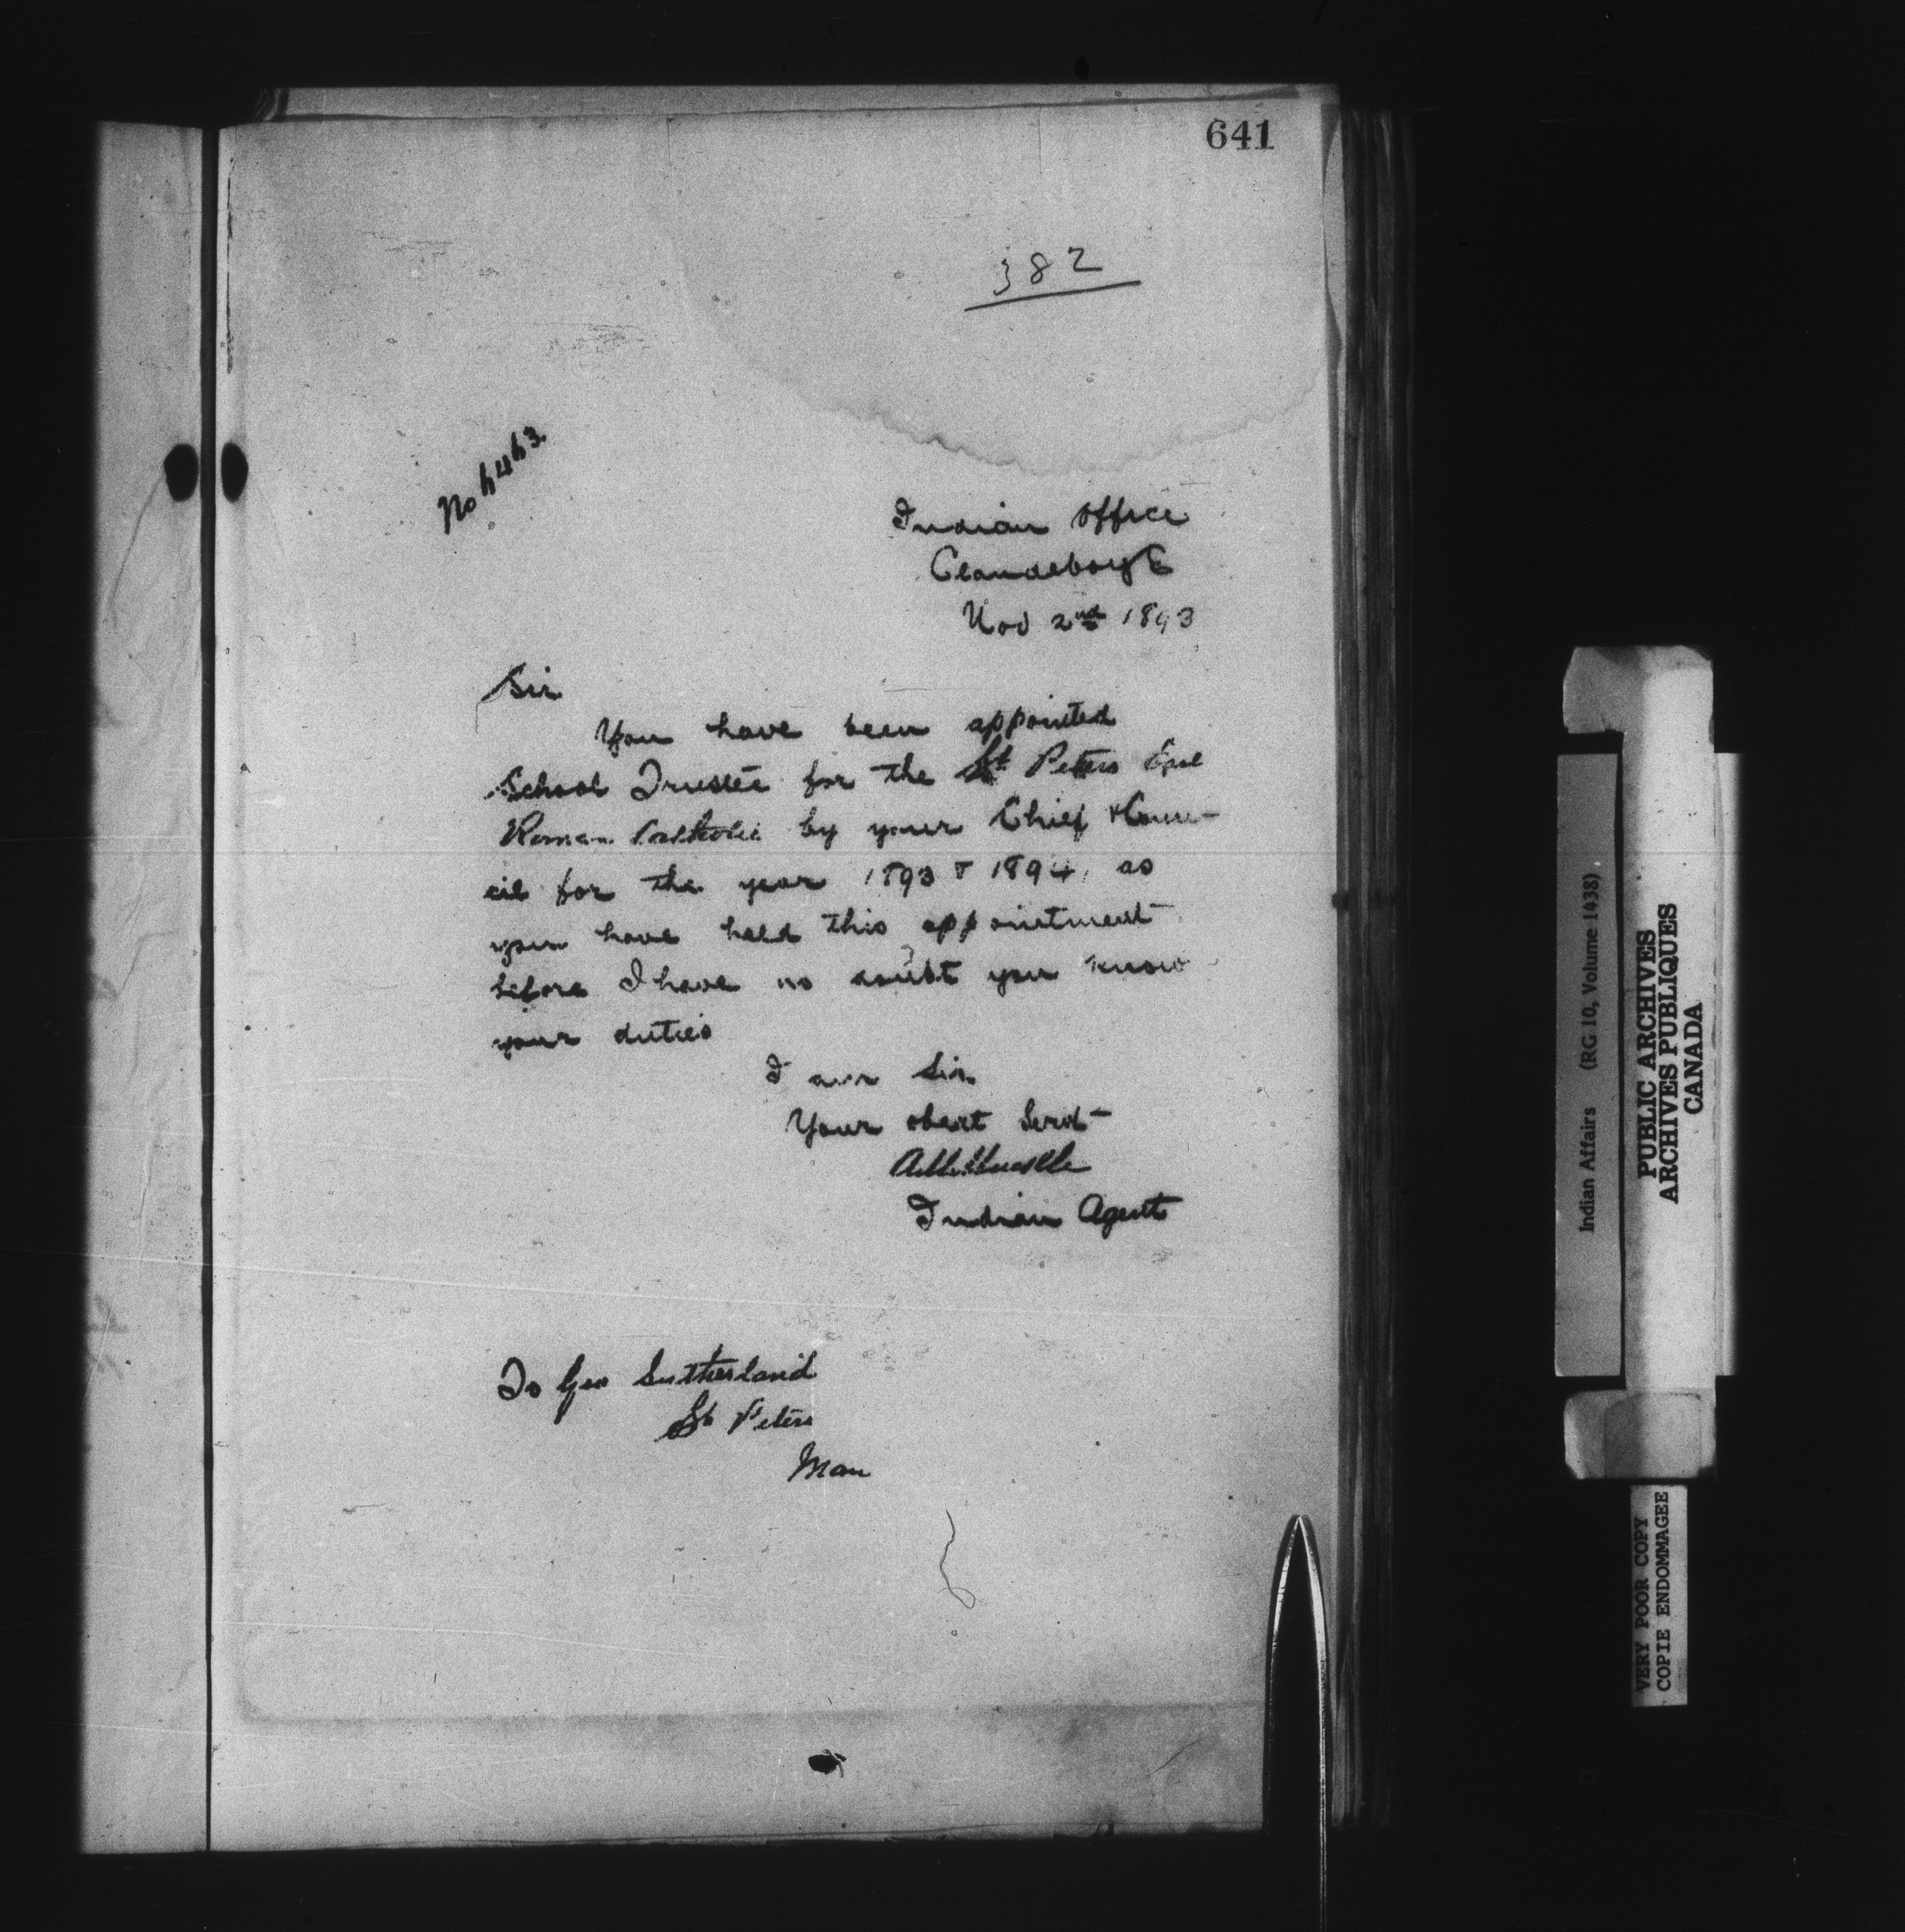 641
382
No
Indian Office
Clandeboye
Nov 2nd 1893
Sir
You have been appointed
School Trustee for the St Peters
Roman Catholic by your Chief & Coun-
cil for the year 1893 & 1894, as
you have held this appointment
before I have no doubt you know
your duties
I am Sir
Your obedt Servt
Indian Agent
To Geo Sutherland
St Peters
Man
Indian Affairs (RG 10, Volume 1438)
PUBLIC ARCHIVES
ARCHIVES PUBLIQUES
CANADA
VERY POOR COPY
COPIE ENDOMMAGEE